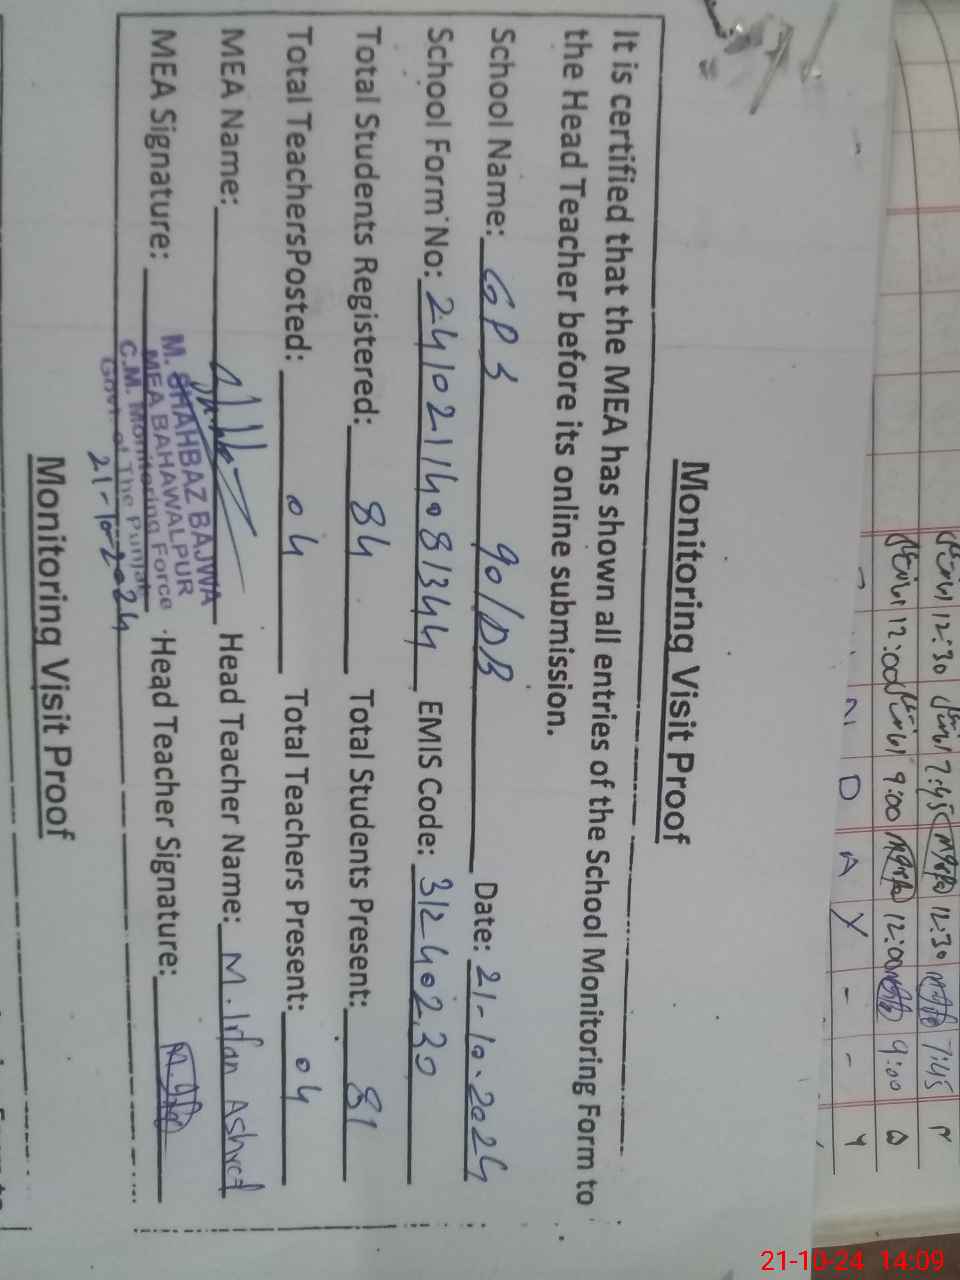 Monitoring Visit Proof
It is certified that the MEA has shown all entries of the School Monitoring Form to
the Head Teacher before its online submission.
School Name: GPS 90/DB Date: 21-10-2024
School Form No: 24102114081344 EMIS Code: 31240230
Total Students Registered: 84 Total Students Present: 81
Total TeachersPosted: 04 Total Teachers Present: 04
MEA Name: Head Teacher Name: M. Irfan Ashraf
MEA Signature: Head Teacher Signature:
M. SHAHBAZ BAJWA
MEA BAHAWALPUR
C.M. Monitoring Force
Govt. of The Punjab
21-10-2024
Monitoring Visit Proof
12:30 7:45 12:30 7:45
12:00 9:00 12:00 9:00
N D A Y - -
21-10-24 14:09